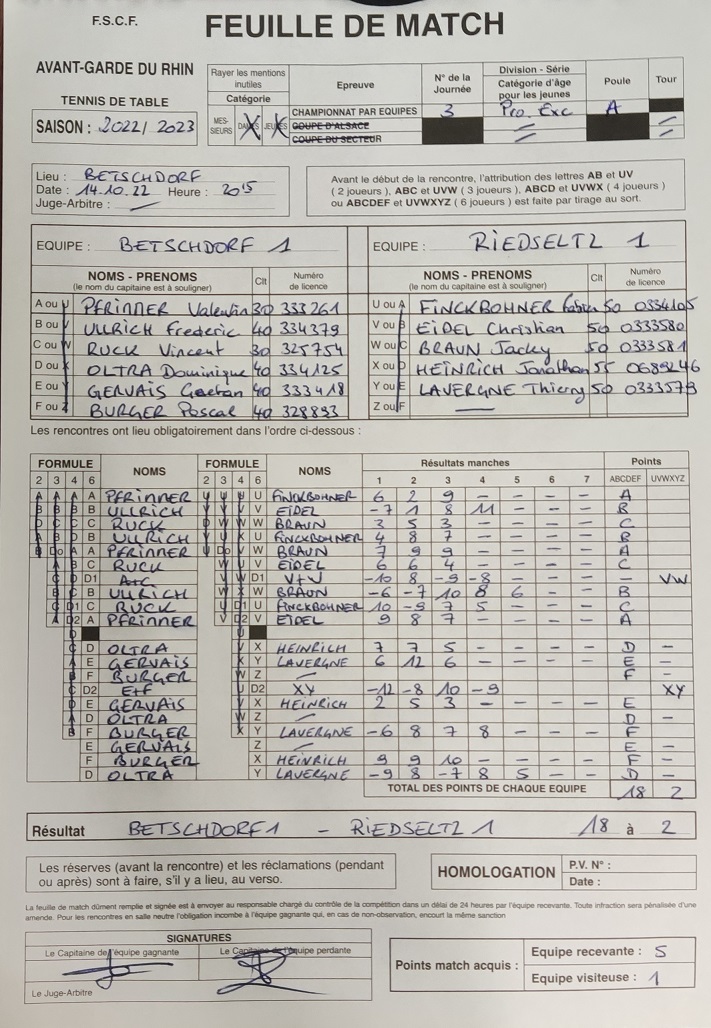 F.S.C.F. FEUILLE DE MATCH
AVANT-GARDE DU RHIN
TENNIS DE TABLE
SAISON : 2022/2023
Rayer les mentions inutiles
Catégorie
MES-SIEURS DAMES JEUNES
Epreuve
CHAMPIONNAT PAR EQUIPES
COUPE D'ALSACE
COUPE DU SECTEUR
N° de la Journée
3
Division - Série
Catégorie d'âge pour les jeunes
Pro. Exc
Poule
A
Tour
Lieu : BETSCHDORF
Date : 14.10.22 Heure : 20 15
Juge-Arbitre : —
Avant le début de la rencontre, l'attribution des lettres AB et UV
( 2 joueurs ), ABC et UVW ( 3 joueurs ), ABCD et UVWX ( 4 joueurs )
ou ABCDEF et UVWXYZ ( 6 joueurs ) est faite par tirage au sort.
EQUIPE : BETSCHDORF 1 EQUIPE : RIEDSELTZ 1
NOMS - PRENOMS (le nom du capitaine est à souligner) Clt Numéro de licence
NOMS - PRENOMS (le nom du capitaine est à souligner) Clt Numéro de licence
A ou U PFRINNER Valentin 30 333261 U ou A FINCKBOHNER Fabien 50 0334105
B ou V ULLRICH Frederic 40 334379 V ou B EIDEL Christian 50 0333580
C ou W RUCK Vincent 30 325754 W ou C BRAUN Jacky 50 0333581
D ou X OLTRA Dominique 40 334125 X ou D HEINRICH Jonathan 55 0689246
E ou Y GERVAIS Gaetan 40 333418 Y ou E LAVERGNE Thierry 50 0333579
F ou Z BURGER Pascal 40 328893 Z ou F —
Les rencontres ont lieu obligatoirement dans l'ordre ci-dessous :
FORMULE NOMS FORMULE NOMS Résultats manches Points
2 3 4 6 2 3 4 6 1 2 3 4 5 6 7 ABCDEF UVWXYZ
A PFRINNER U FINCKBOHNER 6 2 9 - - - - A
B ULLRICH V EIDEL -7 1 8 11 - - - B
C RUCK W BRAUN 3 5 3 - - - - C
B ULLRICH U FINCKBOHNER 4 8 7 - - - - B
A PFRINNER W BRAUN 7 9 9 - - - - A
C RUCK V EIDEL 6 6 4 - - - - C
D1 A+C D1 V+V -10 8 -9 -8 - - - - VW
B ULLRICH W BRAUN -6 -7 10 8 6 - - B
C RUCK U FINCKBOHNER 10 -9 7 5 - - - C
A PFRINNER V EIDEL 9 8 7 - - - - A
D OLTRA X HEINRICH 7 7 5 - - - - D -
E GERVAIS Y LAVERGNE 6 12 6 - - - - E -
F BURGER Z — F -
D2 E+F D2 XY -12 -8 10 -9 XY
E GERVAIS X HEINRICH 2 5 3 - - - - E
D OLTRA Z — D -
F BURGER Y LAVERGNE -6 8 7 8 - - - F -
E GERVAIS Z — E -
F BURGER X HEINRICH 9 9 10 - - - - F -
D OLTRA Y LAVERGNE -9 8 -7 8 5 - - D -
TOTAL DES POINTS DE CHAQUE EQUIPE 18 2
Résultat BETSCHDORF 1 - RIEDSELTZ 1 18 à 2
Les réserves (avant la rencontre) et les réclamations (pendant
ou après) sont à faire, s'il y a lieu, au verso.
HOMOLOGATION
P.V. N° :
Date :
La feuille de match dûment remplie et signée est à envoyer au responsable chargé du contrôle de la compétition dans un délai de 24 heures par l'équipe recevante. Toute infraction sera pénalisée d'une
amende. Pour les rencontres en salle neutre l'obligation incombe à l'équipe gagnante qui, en cas de non-observation, encourt la même sanction
SIGNATURES
Le Capitaine de l'équipe gagnante Le Capitaine de l'équipe perdante
Le Juge-Arbitre
Points match acquis :
Equipe recevante : 5
Equipe visiteuse : 1